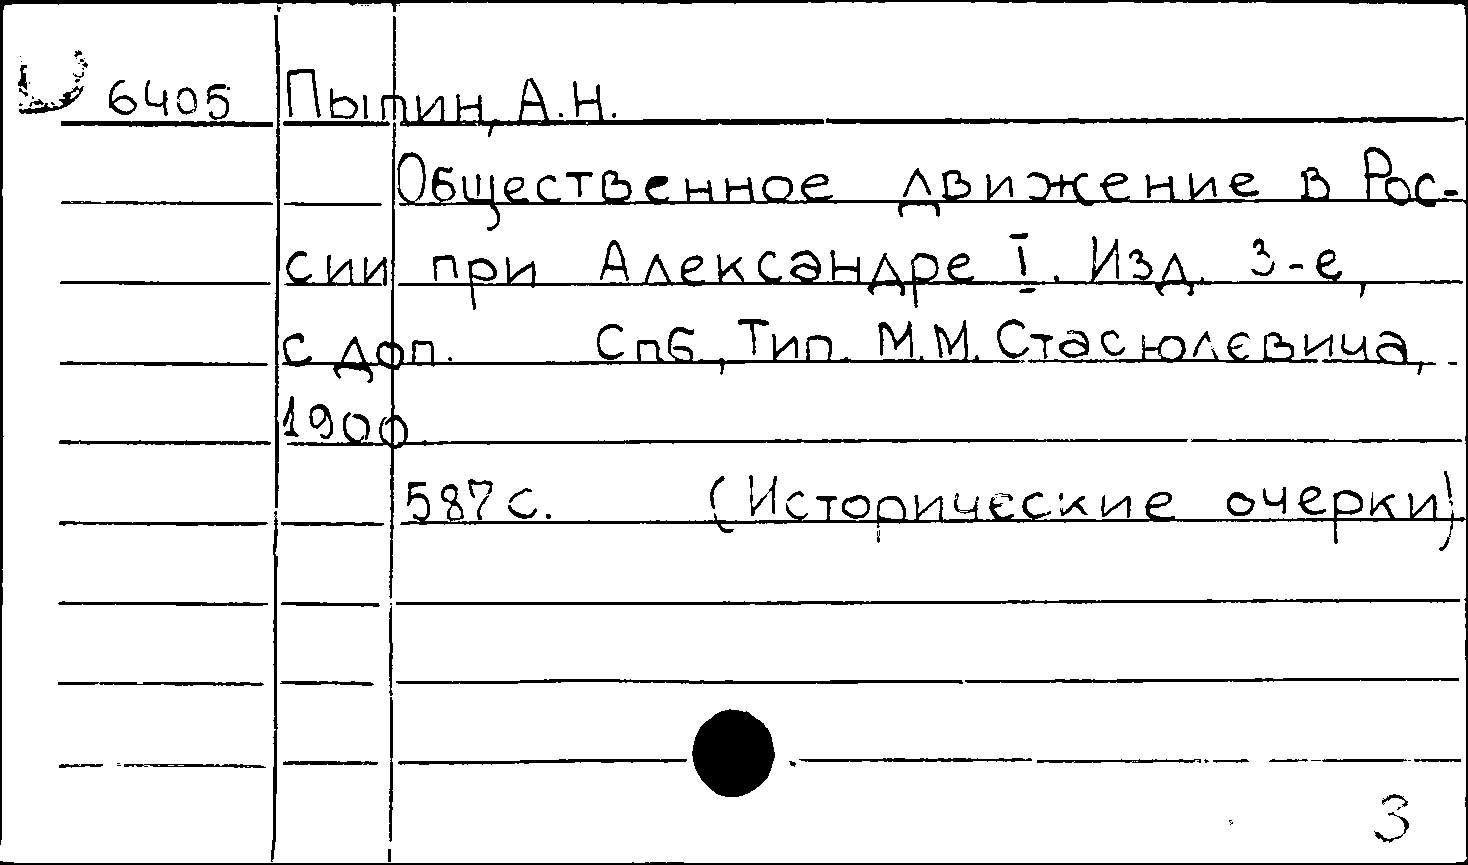 U 6405 Пыпин, А.Н.
Общественное движение в Рос-
сии при Александре I. Изд. 3-е,
с доп. Спб, Тип. М.М. Стасюлевича,
1900.
587 с. (Исторические очерки)
3